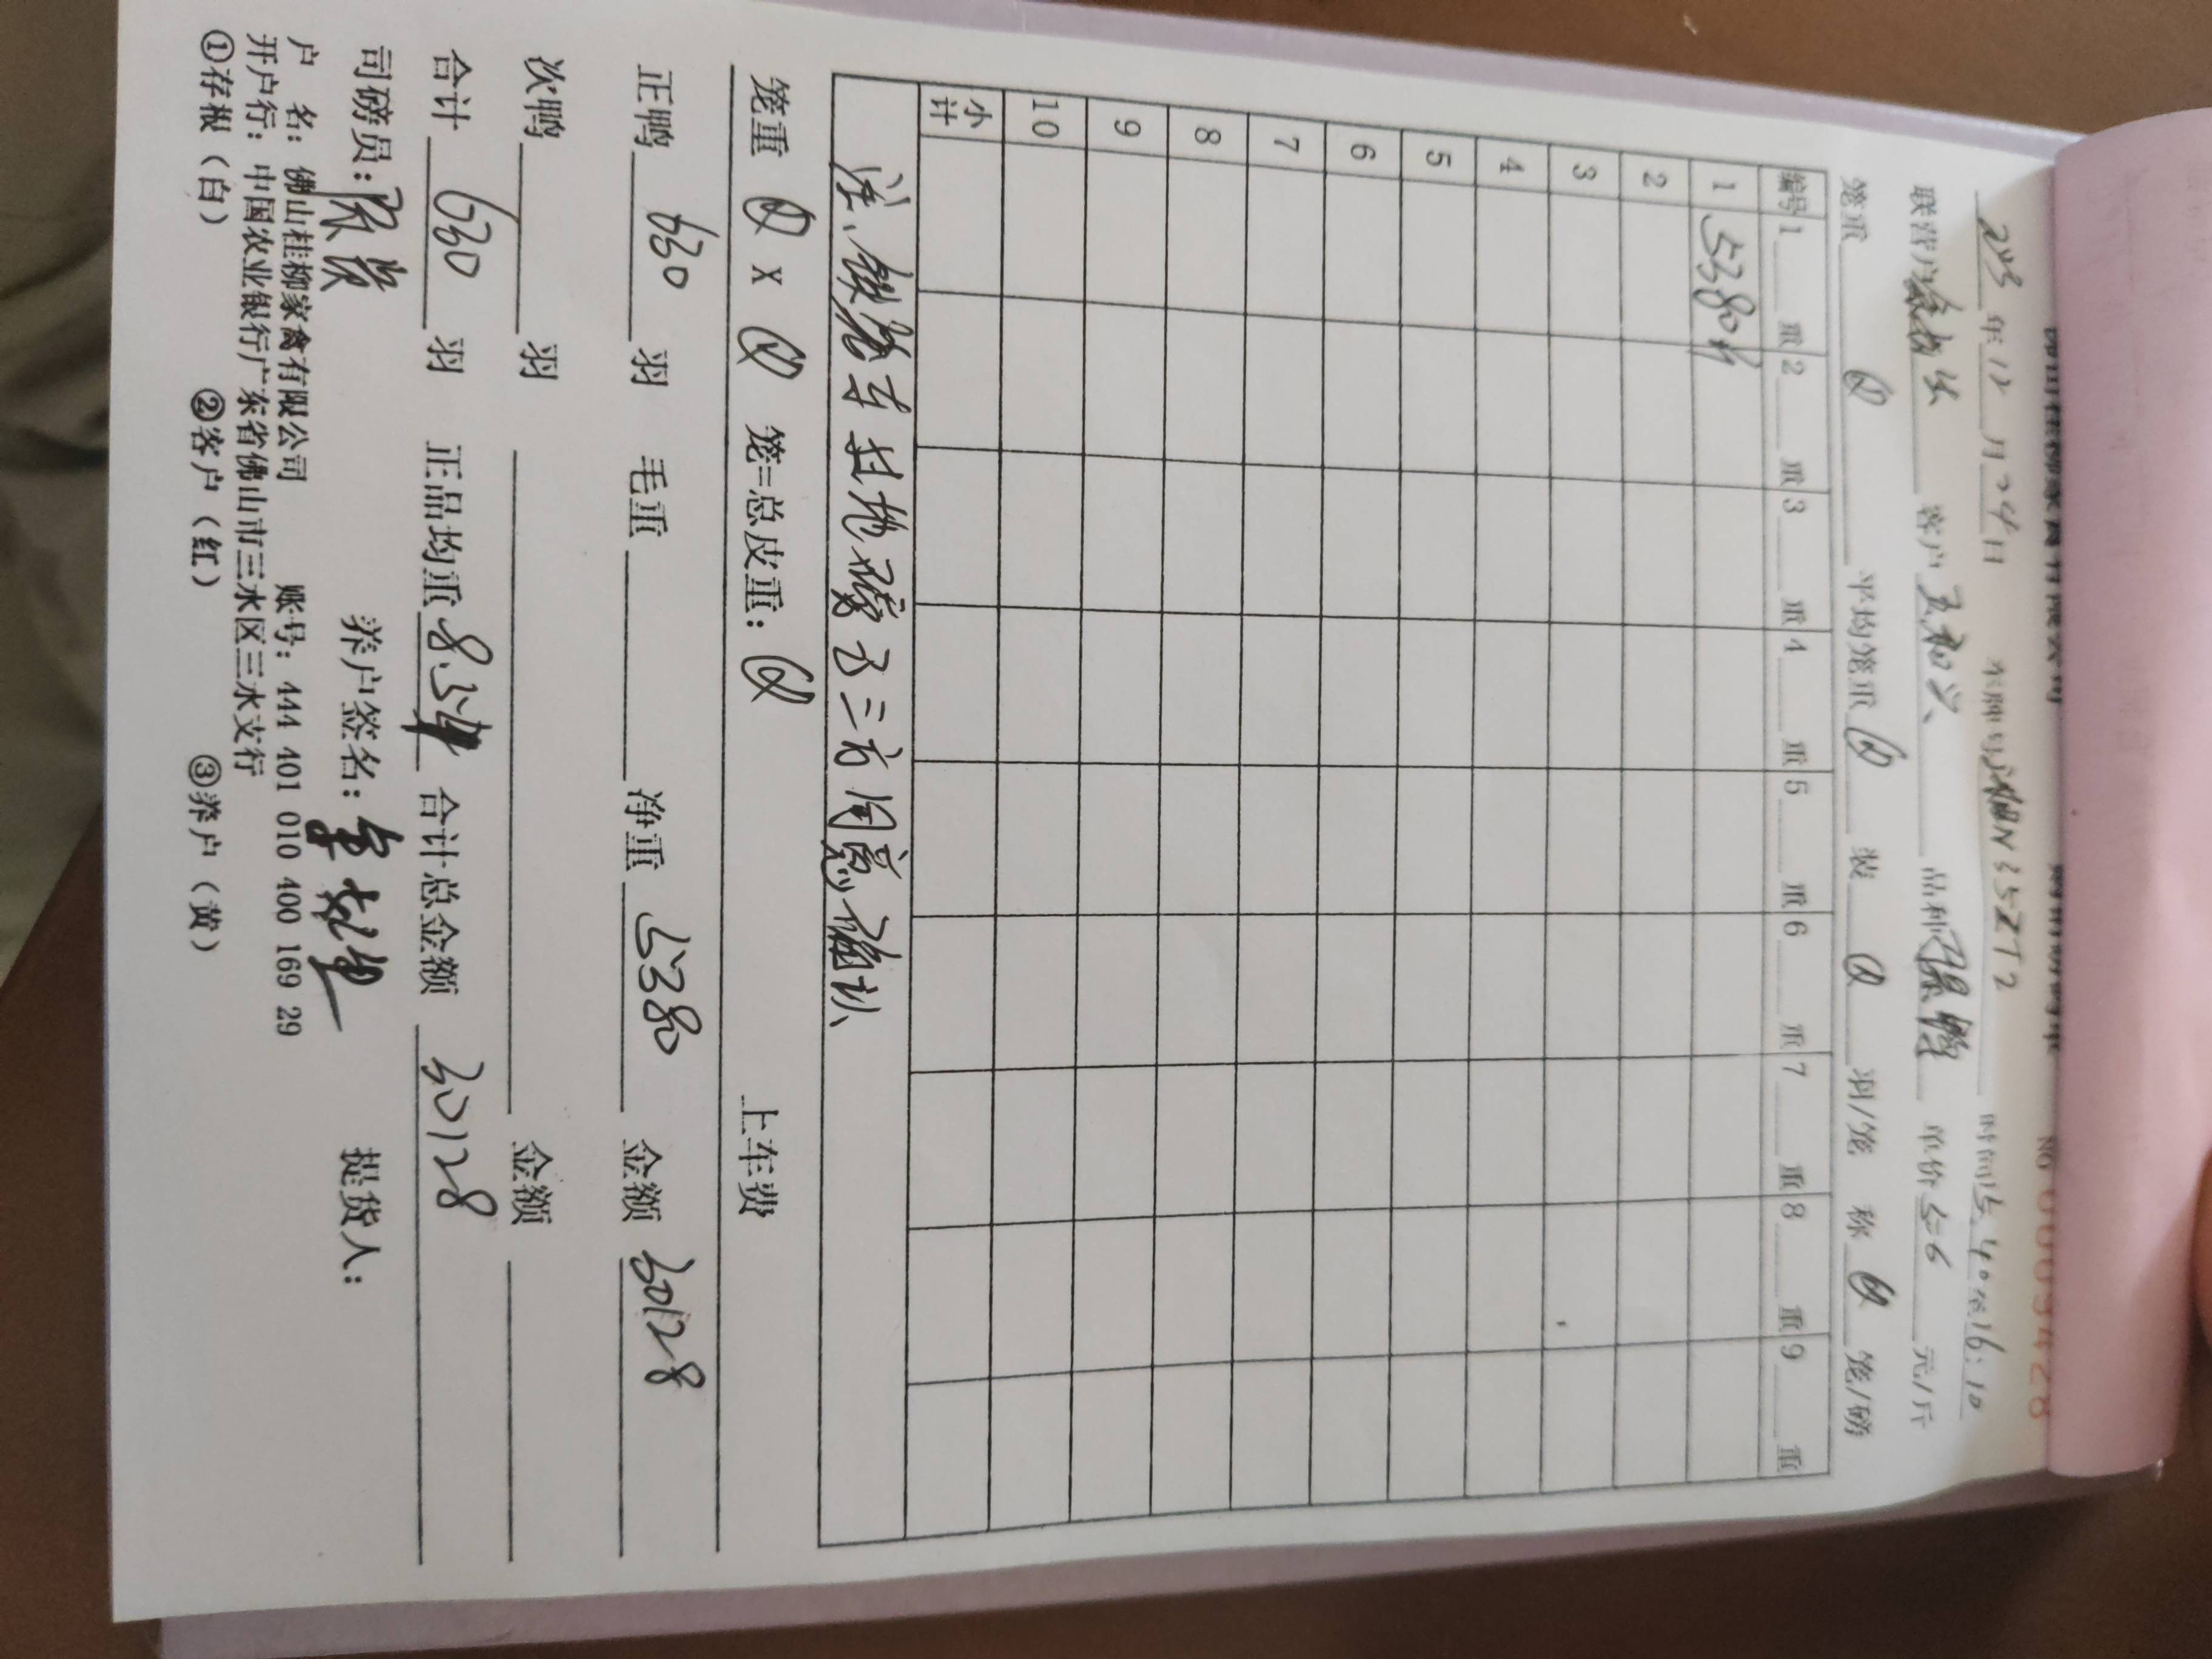 2023年12月24日 车牌号 N35ZT2 时间15:40至16:10
联营户 客户 王和义 品种 单价5.6元/斤
笼重 0 平均笼重 0 装 0 羽/笼 称 0 笼/磅
编号 1 重 2 重 3 重 4 重 5 重 6 重 7 重 8 重 9 重
1 5380斤
2
3
4
5
6
7
8
9
10
小计
注、 车 地磅 三方同意确认
笼重 0 x 0 笼=总皮重: 0 上车费
正鸭 630 羽 毛重 净重 5380 金额 30128
次鸭 羽 金额
合计 630 羽 正品均重 8.54 合计总金额 30128
司磅员: 养户签名: 提货人:
户 名: 佛山桂柳家禽有限公司 账号: 444 401 010 400 169 29
开户行: 中国农业银行广东省佛山市三水区三水支行
①存根（白） ②客户（红） ③养户（黄）